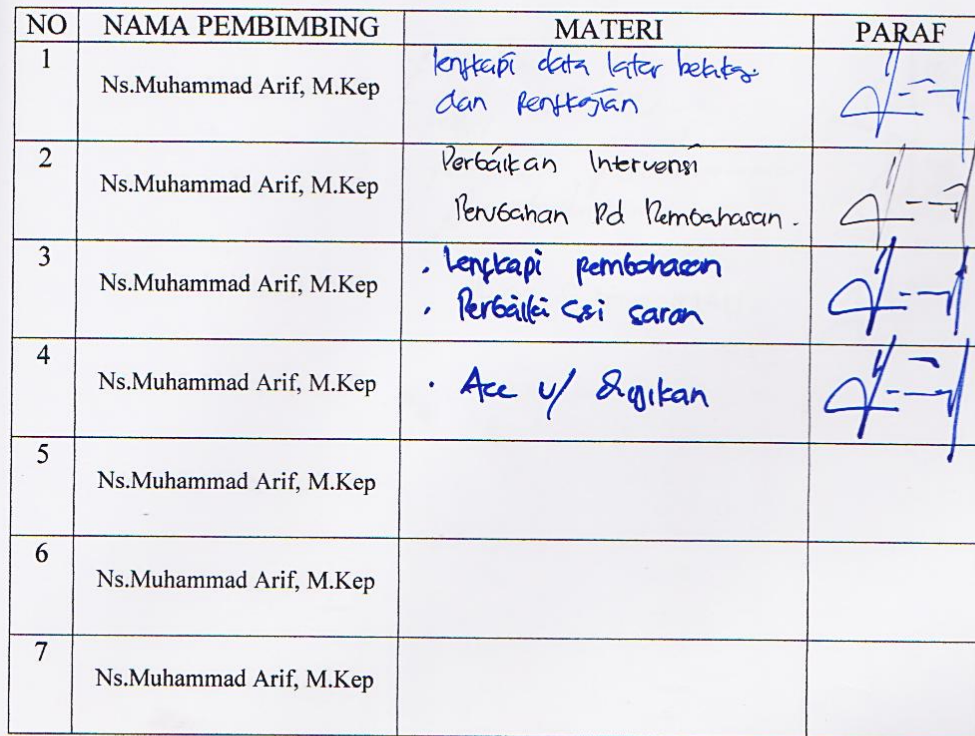 NO NAMA PEMBIMBING MATERI PARAF
1 Ns.Muhammad Arif, M.Kep lengkapi data latar belakag
dan pengkajian
2 Ns.Muhammad Arif, M.Kep Perbaikan Intervensi
Perubahan Pd Pembahasan.
3 Ns.Muhammad Arif, M.Kep . lengkapi pembahasan
. Perbaiki isi saran
4 Ns.Muhammad Arif, M.Kep . Acc u/ diujikan
5 Ns.Muhammad Arif, M.Kep
6 Ns.Muhammad Arif, M.Kep
7 Ns.Muhammad Arif, M.Kep